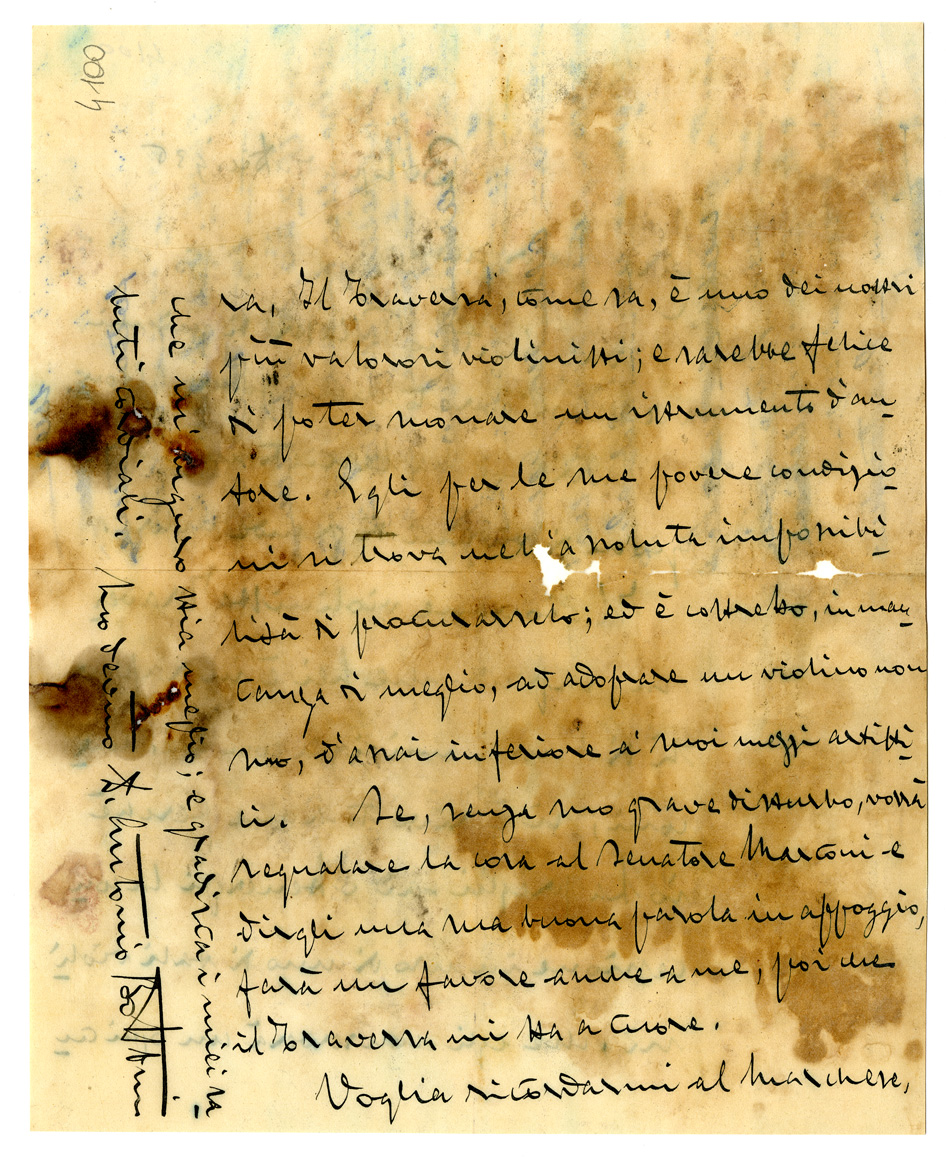 4100
ra. Il Traversa, come sa, è uno dei nostri
più valorosi violinisti; e sarebbe felice
di poter suonare un istrumento d'au-
tore. Egli per le sue povere condizio-
ni si trova nell'assoluta impossibi-
lità di procurarselo; ed è costretto, in man-
canza di meglio, ad adoprare un violino non
suo, d'assai inferiore a' suoi mezzi artisti-
ci. Se, senza suo grave disturbo, vorrà
segnalare la cosa al Senatore Marconi e
dirgli una sua buona parola in appoggio,
farà un favore anche a me; poi che
il Traversa mi sta a cuore.
Voglia ricordarmi al Marchese,
che mi auguro stia meglio; e gradisca i miei sa-
luti cordiali.
Suo dev.mo A. Antonio